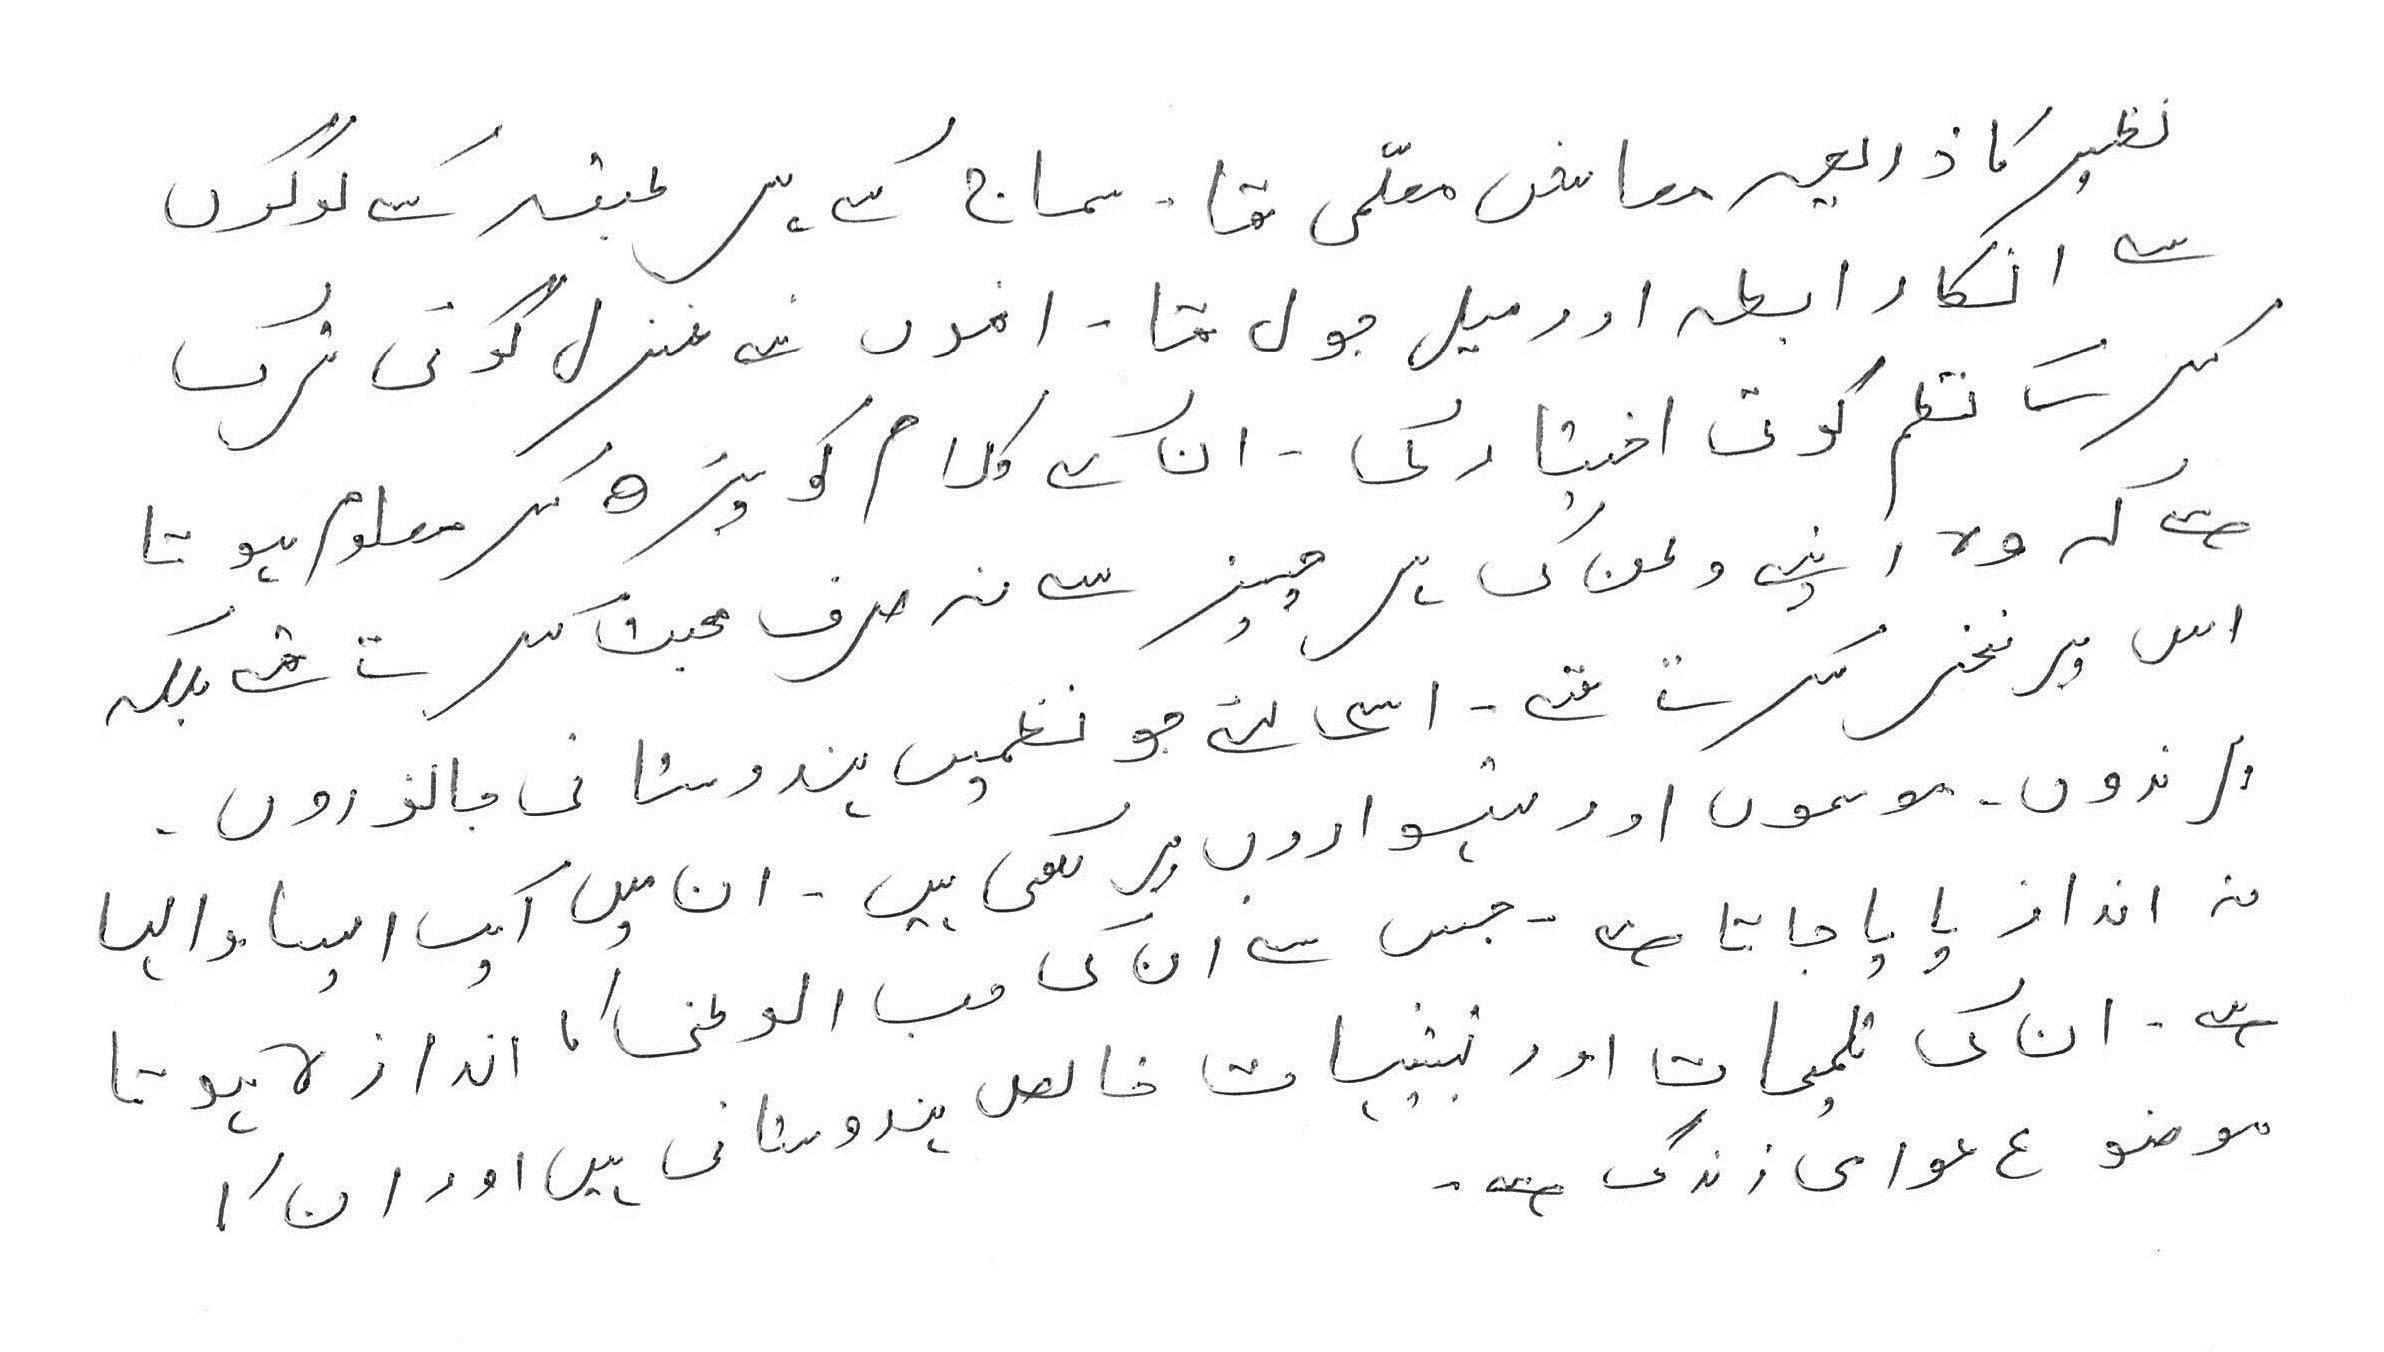 نظیر کا ذریعہ معاش معلّمی تھا۔ سماج کے ہر طبقہ کے لوگوں
سے انکا رابطہ اور میل جول تھا۔ انھوں نے غزل گوئی ترک
کرکے نظم گوئی اختیار کی۔ ان کے کلام کو پڑھ کر معلوم ہوتا
ہے کہ وہ اپنے وطن کی ہر چیز سے نہ صرف محبت کرتے تھے بلکہ
اس پر فخر کرتے تھے۔ اسی لئے جو نظمیں ہندوستانی جانوروں۔
پرندوں۔ موسموں اور تہواروں پر لکھی ہیں۔ ان میں ایک ایسا والہا
نہ انداز پایا جاتا ہے۔ جس سے ان کی حب الوطنی کا اندازہ ہوتا
ہے۔ ان کی تلمیحات اور تشبیہات خالص ہندوستانی ہیں اور ان کا
موضوع عوامی زندگی ہے۔